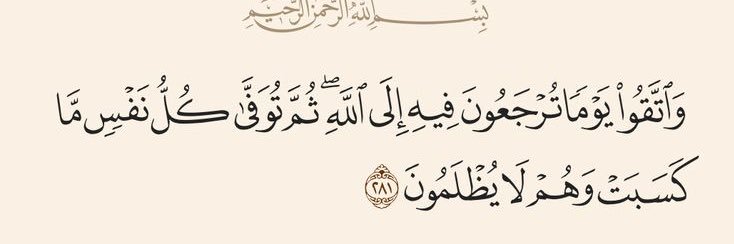 بِسْمِ اللَّهِ الرَّحْمَنِ الرَّحِيمِ
وَٱتَّقُوا۟ يَوْمًا تُرْجَعُونَ فِيهِ إِلَى ٱللَّهِ ۖ ثُمَّ تُوَفَّىٰ كُلُّ نَفْسٍ مَّا
كَسَبَتْ وَهُمْ لَا يُظْلَمُونَ ٢٨١